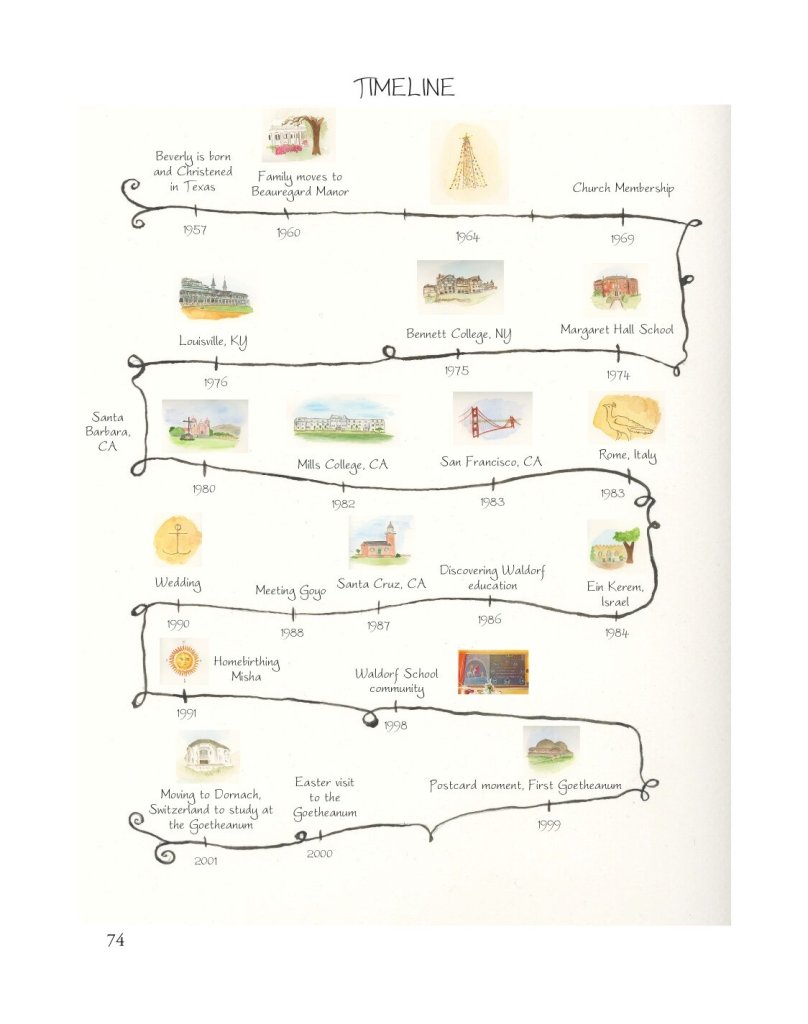 TIMELINE
Beverly is born
and Christened
in Texas
Family moves to
Beauregard Manor
Church Membership
1957
1960
1964
1969
Louisville, KY
Bennett College, NY
Margaret Hall School
1976
1975
1974
Santa
Barbara,
CA
Mills College, CA
San Francisco, CA
Rome, Italy
1980
1982
1983
1983
Wedding
Meeting Goyo
Santa Cruz, CA
Discovering Waldorf
education
Ein Kerem,
Israel
1990
1988
1987
1986
1984
Homebirthing
Misha
Waldorf School
community
1991
1998
Moving to Dornach,
Switzerland to study at
the Goetheanum
Easter visit
to the
Goetheanum
Postcard moment, First Goetheanum
2001
2000
1999
74